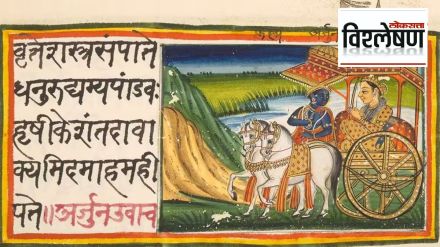 लोकसत्ता
विश्लेषण
अर्जुन
वृत्तेशस्त्रसंपाते
धनुरुद्यम्यपांडवः
हृषीकेशंतदावा
क्यमिदमाहमही
पते॥अर्जुनउवाच